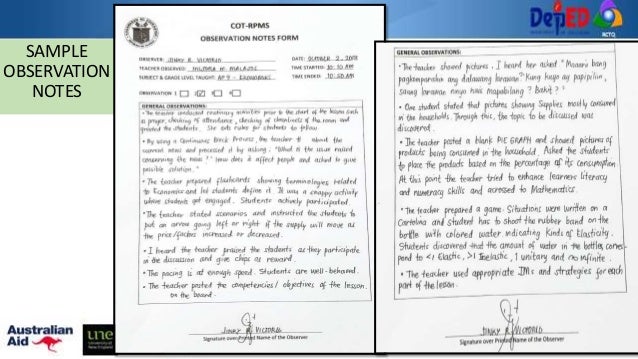 SAMPLE
OBSERVATION
NOTES
COT-RPMS
OBSERVATION NOTES FORM
OBSERVER: JINKY R. VICTORIO DATE: 2, 2018
TEACHER OBSERVED: TIME STARTED: 10:10 AM
SUBJECT & GRADE LEVEL TAUGHT: AP 9 - EKONOMIKS TIME ENDED: 10:50 AM
OBSERVATION 1 2 3 4
GENERAL OBSERVATIONS:
• The teacher conducted routinary activities prior to the start of the lesson such
as prayer, checking of attendance, checking of cleanliness of the room and
greeted the students. She sets rules for students to follow.
• By using a Continuous Brick Process, the teacher about the
current news and processed it by asking: "What is the issue raised
concerning the news?" How does it affect people and asked to give
possible solution."
• The teacher prepared flashcards showing terminologies related
to Economics and let students define it. It was a snappy activity
whose students got engaged. Students actively participated.
• The teacher stated scenarios and instructed the students to
put an arrow going left or right if the supply will move as
the price/factors increased or decreased.
• I heard the teacher praised the students as they participate
in the discussion and give claps as reward.
• The pacing is at enough speed. Students are well-behaved.
• The teacher posted the competencies/ objectives of the lesson
on the board.
JINKY R. VICTORIO
Signature over Printed Name of the Observer
GENERAL OBSERVATIONS:
• The teacher showed pictures. I heard her asked "Maaari bang
pagkomparahin ang dalawang larawan? Kung kayo ay papipiliin,
saang larawan ninyo nais mapabilang? Bakit?"
• One student stated that pictures showing supplies mostly consumed
in the households. Through this, the topic to be discussed was
discovered.
• The teacher posted a blank PIE GRAPH and showed pictures of
products being consumed in the household. Asked the students
to place the products based on the percentage of its consumption.
At this point the teacher tried to enhance learners literacy
and numeracy skills and acrossed to Mathematics.
• The teacher prepared a game. Situations were written on a
Cartolina and student has to shoot the rubber band on the
bottle with colored water indicating kinds of Elasticity.
Students discovered that the amount of water in the bottles corres-
pond to <1 Elastic, >1 Inelastic, 1 unitary and no infinite.
• The teacher used appropriate IMs and strategies for each
part of the lesson.
JINKY R. VICTORIO
Signature over Printed Name of the Observer
DepED
RCTQ
Australian
Aid
une